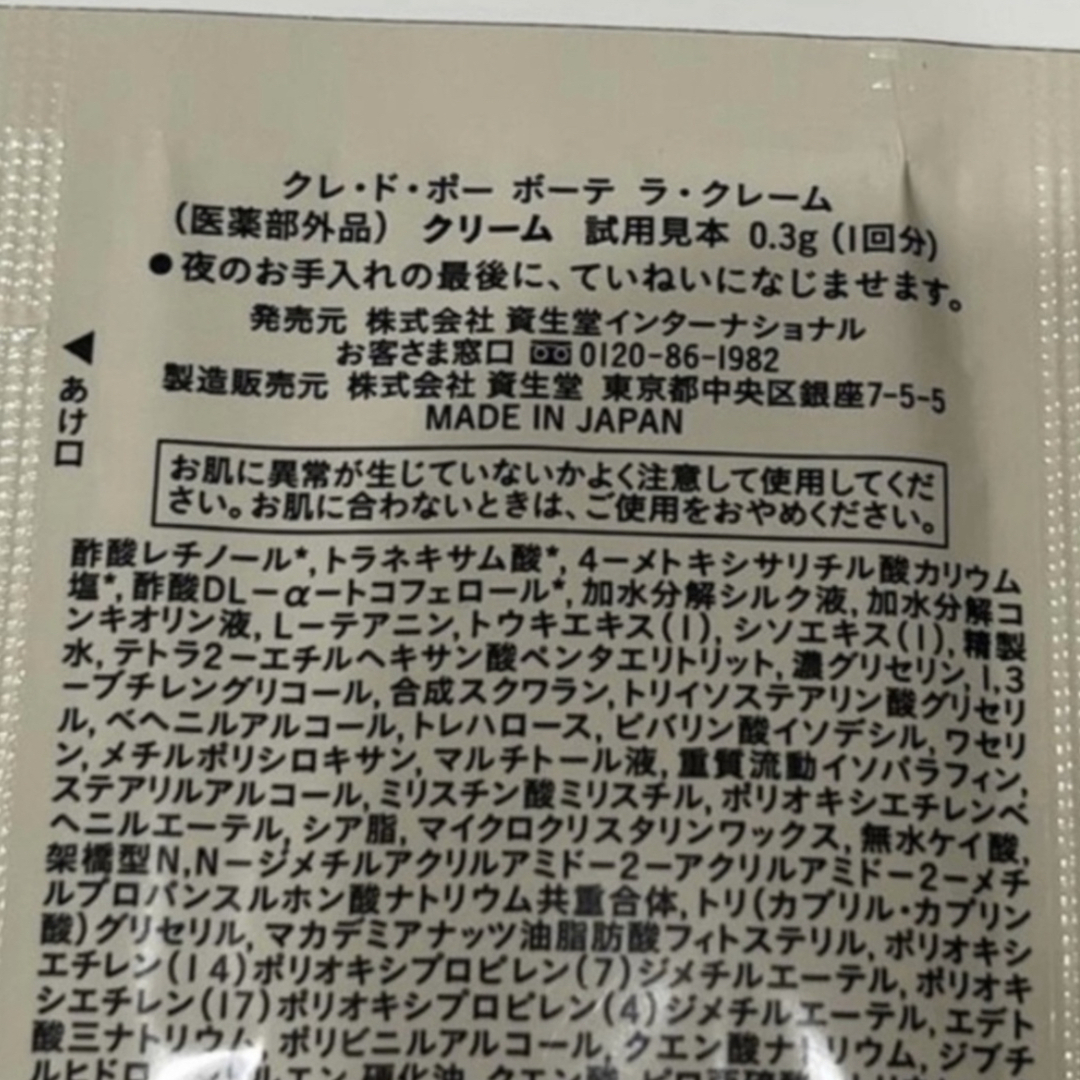 クレ・ド・ポー ボーテ ラ・クレーム
(医薬部外品) クリーム 試用見本 0.3g (1回分)
●夜のお手入れの最後に、ていねいになじませます。
発売元 株式会社 資生堂インターナショナル
お客さま窓口 0120-86-1982
製造販売元 株式会社 資生堂 東京都中央区銀座7-5-5
MADE IN JAPAN
◀あけ口
お肌に異常が生じていないかよく注意して使用してくだ
さい。お肌に合わないときは、ご使用をおやめください。
酢酸レチノール*, トラネキサム酸*, 4-メトキシサリチル酸カリウム
塩*, 酢酸DL-α-トコフェロール*, 加水分解シルク液, 加水分解コ
ンキオリン液, L-テアニン, トウキエキス(1), シソエキス(1), 精製
水, テトラ2-エチルヘキサン酸ペンタエリトリット, 濃グリセリン, 1,3
-ブチレングリコール, 合成スクワラン, トリイソステアリン酸グリセリ
ル, ベヘニルアルコール, トレハロース, ピバリン酸イソデシル, ワセリ
ン, メチルポリシロキサン, マルチトール液, 重質流動イソパラフィン,
ステアリルアルコール, ミリスチン酸ミリスチル, ポリオキシエチレンベ
ヘニルエーテル, シア脂, マイクロクリスタリンワックス, 無水ケイ酸,
架橋型N,N-ジメチルアクリルアミド-2-アクリルアミド-2-メチ
ルプロパンスルホン酸ナトリウム共重合体, トリ(カプリル・カプリン
酸)グリセリル, マカデミアナッツ油脂肪酸フィトステリル, ポリオキシ
エチレン(14)ポリオキシプロピレン(7)ジメチルエーテル, ポリオキ
シエチレン(17)ポリオキシプロピレン(4)ジメチルエーテル, エデト
酸三ナトリウム, ポリビニルアルコール, クエン酸ナトリウム, ジブチ
ルヒドロ 硬化油, クエン酸,